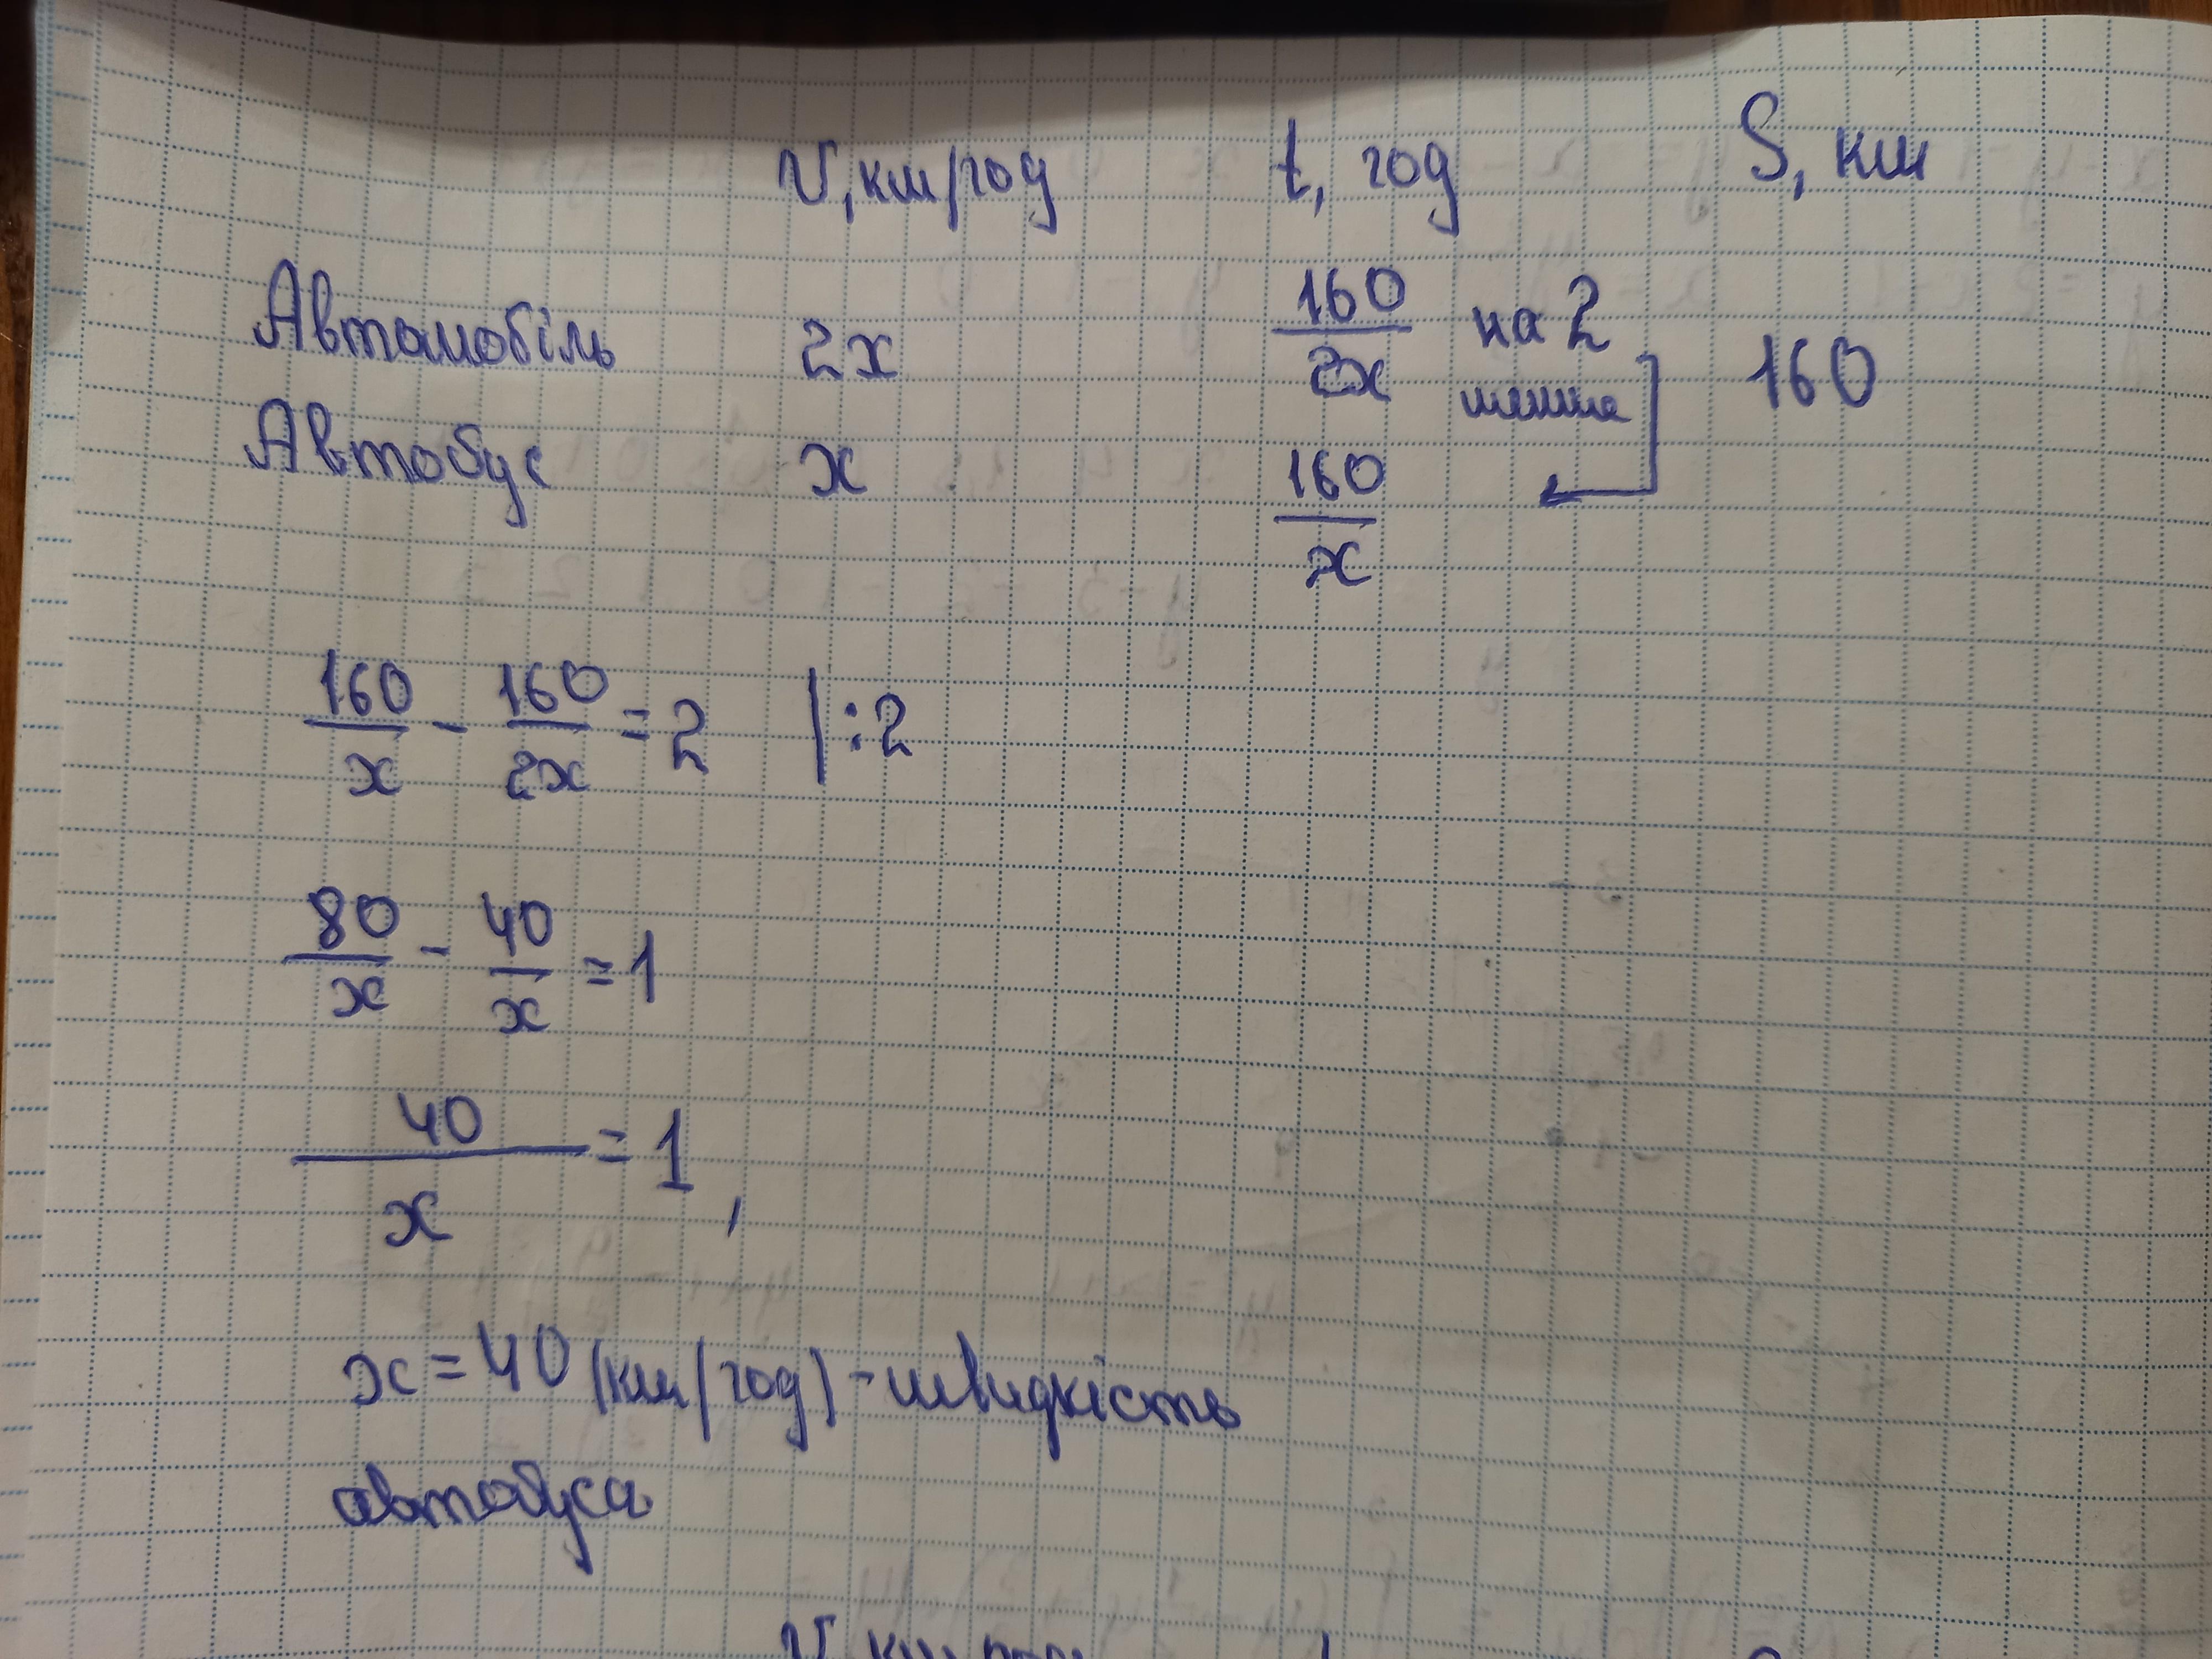 V, км/год t, год S, км
Автомобіль 2x 160/2x на 2 менше 160
Автобус x 160/x
160/x - 160/2x = 2 |:2
80/x - 40/x = 1
40/x = 1,
x = 40 (км/год) - швидкість
автобуса
V, км/год